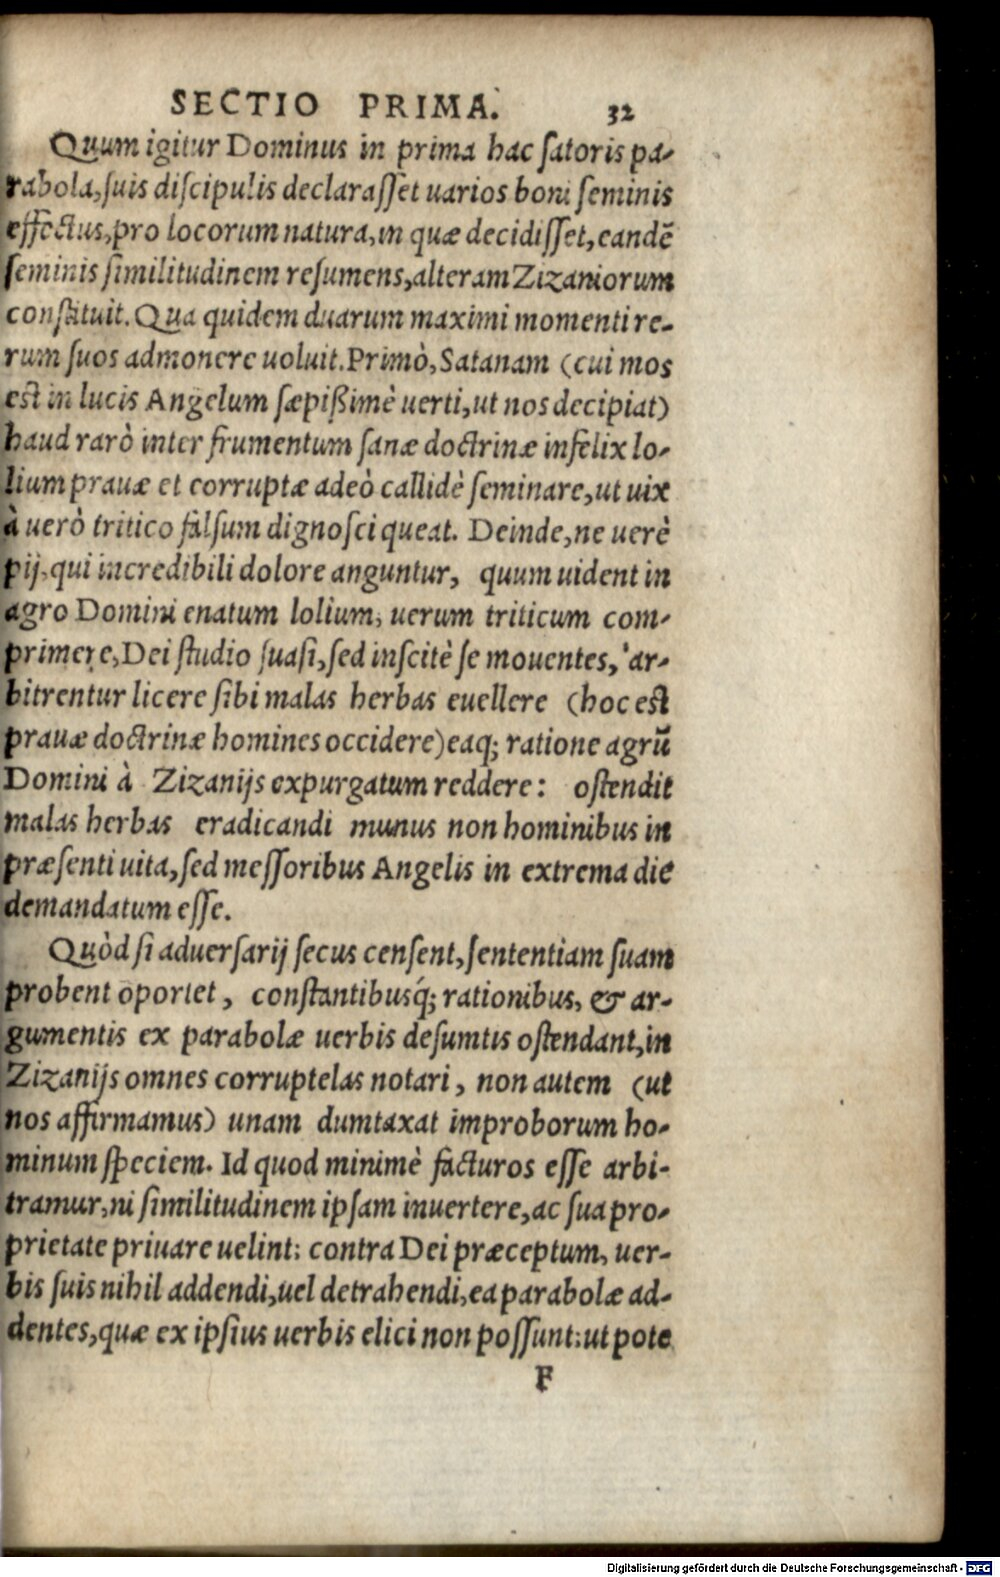 SECTIO PRIMA. 32
Quum igitur Dominus in prima hac ſatoris pa-
rabola, ſuis diſcipulis declaraſſet uarios boni ſeminis
effectus, pro locorum natura, in quæ decidiſſet, eandẽ
ſeminis ſimilitudinem reſumens, alteram Zizaniorum
conſtituit. Qua quidem duarum maximi momenti re-
rum ſuos admonere uoluit. Primò, Satanam (cui mos
est in lucis Angelum ſæpißimè uerti, ut nos decipiat)
haud rarò inter frumentum ſanæ doctrinæ infelix lo-
lium prauæ et corruptæ adeò callidè ſeminare, ut uix
à uerò tritico falſum dignoſci queat. Deinde, ne uerè
pij, qui incredibili dolore anguntur, quum uident in
agro Domini enatum lolium, uerum triticum com-
primere, Dei ſtudio ſuaſi, ſed inſcitè ſe mouentes, ar-
bitrentur licere ſibi malas herbas euellere (hoc est
prauæ doctrinæ homines occidere) eaq; ratione agrũ
Domini à Zizanijs expurgatum reddere: oſtendit
malas herbas eradicandi munus non hominibus in
præſenti uita, ſed meſſoribus Angelis in extrema die
demandatum eſſe.
Quòd ſi aduerſarij ſecus cenſent, ſententiam ſuam
probent oportet, conſtantibusq́; rationibus, & ar-
gumentis ex parabolæ uerbis deſumtis oſtendant, in
Zizanijs omnes corruptelas notari, non autem (ut
nos affirmamus) unam dumtaxat improborum ho-
minum ſpeciem. Id quod minimè facturos eſſe arbi-
tramur, ni ſimilitudinem ipſam inuertere, ac ſua pro-
prietate priuare uelint: contra Dei præceptum, uer-
bis ſuis nihil addendi, uel detrahendi, ea parabolæ ad-
dentes, quæ ex ipſius uerbis elici non poſſunt: ut pote
F
Digitalisierung gefördert durch die Deutsche Forschungsgemeinschaft - DFG